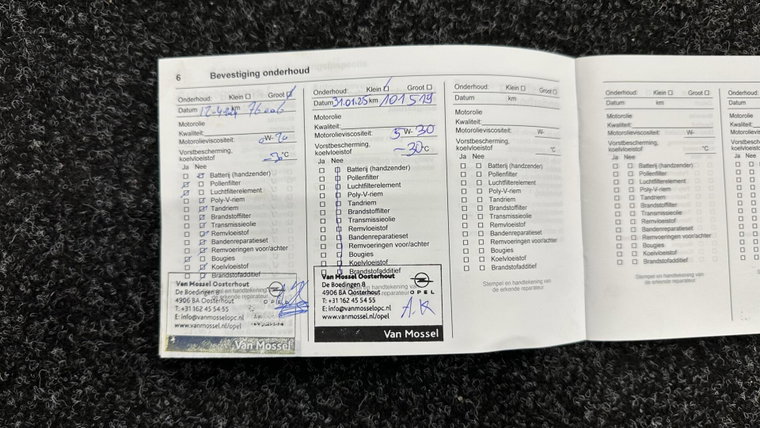 6 Bevestiging onderhoud
Onderhoud: Klein Groot
Datum km 76006
Motorolie
Kwaliteit:
Motorolieviscositeit: 0W-
Vorstbescherming, koelvloeistof °C
Ja Nee
Batterij (handzender)
Pollenfilter
Luchtfilterelement
Poly-V-riem
Tandriem
Brandstoffilter
Transmissieolie
Remvloeistof
Bandenreparatieset
Remvoeringen voor/achter
Bougies
Koelvloeistof
Brandstofadditief
Van Mossel Oosterhout
De Boedingen 8
4906 BA Oosterhout
T: +31 162 45 54 55
E: info@vanmosselopc.nl
www.vanmossel.nl/opel
Van Mossel
Onderhoud: Klein Groot
Datum 31.01.25 km 101519
Motorolie
Kwaliteit:
Motorolieviscositeit: 5 W- 30
Vorstbescherming, koelvloeistof -30°C
Ja Nee
Batterij (handzender)
Pollenfilter
Luchtfilterelement
Poly-V-riem
Tandriem
Brandstoffilter
Transmissieolie
Remvloeistof
Bandenreparatieset
Remvoeringen voor/achter
Bougies
Koelvloeistof
Brandstofadditief
Van Mossel Oosterhout
De Boedingen 8
4906 BA Oosterhout
T: +31 162 45 54 55
E: info@vanmosselopc.nl
www.vanmossel.nl/opel
OPEL
A.K
Van Mossel
Onderhoud: Klein Groot
Datum km
Motorolie
Kwaliteit:
Motorolieviscositeit: W-
Vorstbescherming, koelvloeistof °C
Ja Nee
Batterij (handzender)
Pollenfilter
Luchtfilterelement
Poly-V-riem
Tandriem
Brandstoffilter
Transmissieolie
Remvloeistof
Bandenreparatieset
Remvoeringen voor/achter
Bougies
Koelvloeistof
Brandstofadditief
Stempel en handtekening van
de erkende reparateur
Onderhoud: Klein Groot
Datum km
Motorolie
Kwaliteit:
Motorolieviscositeit: W-
Vorstbescherming, koelvloeistof °C
Ja Nee
Batterij (handzender)
Pollenfilter
Luchtfilterelement
Poly-V-riem
Tandriem
Brandstoffilter
Transmissieolie
Remvloeistof
Bandenreparatieset
Remvoeringen voor/achter
Bougies
Koelvloeistof
Brandstofadditief
Stempel en handtekening van
de erkende reparateur